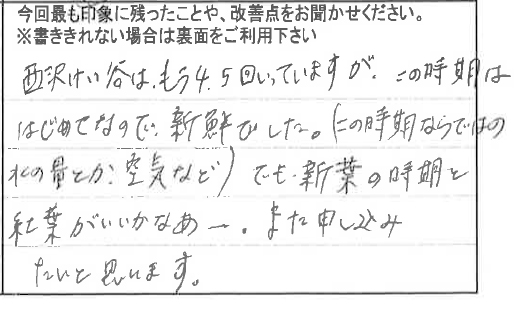 今回最も印象に残ったことや、改善点をお聞かせください。
※書ききれない場合は裏面をご利用下さい
西沢けい谷は、もう4.5回いっていますが、この時期は
はじめてなので、新鮮でした。(この時期ならではの
水の量とか、空気など)でも、新葉の時期と
紅葉がいいかなあー。また申し込み
たいと思います。